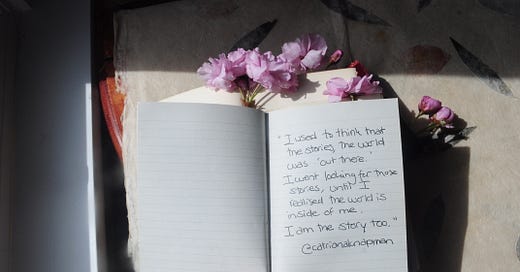 "I used to think that
the stories, the world
was 'out there.'
I went looking for those
stories, until I
realised the world is
inside of me.
I am the story too."